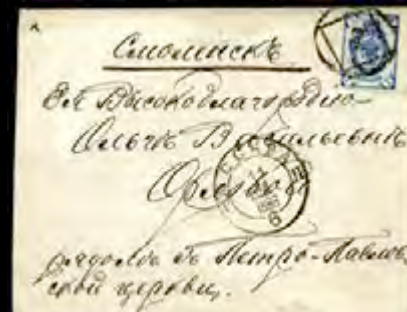 Смоленскъ
Ея Высокоблагородію
Ольгѣ Васильевнѣ
Орловой
рядомъ съ Петро-Павлов
ской церкви.